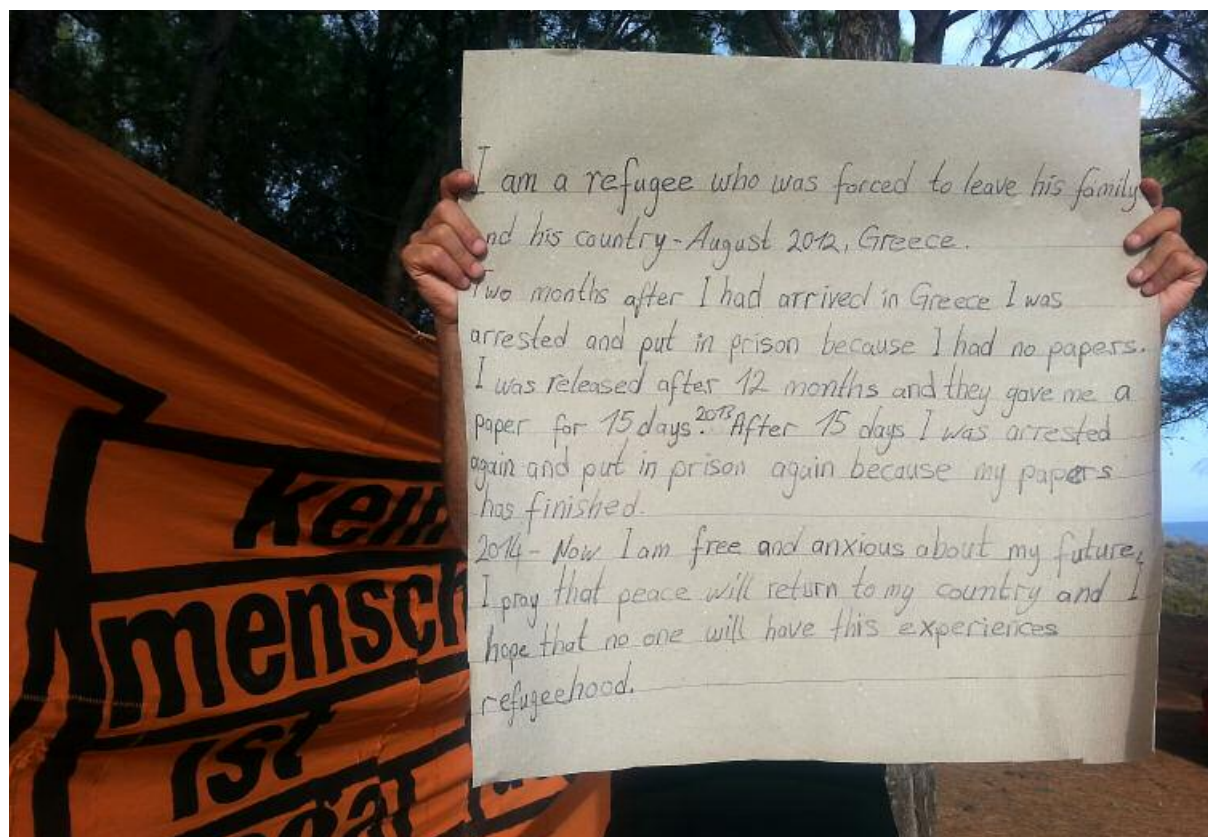 I am a refugee who was forced to leave his family
and his country - August 2012, Greece.
Two months after I had arrived in Greece I was
arrested and put in prison because I had no papers.
I was released after 12 months and they gave me a
paper for 15 days. 2013 After 15 days I was arrested
again and put in prison again because my papers
has finished.
2014 - Now I am free and anxious about my future,
I pray that peace will return to my country and I
hope that no one will have this experiences
refugeehood.
kein
mensch
ist